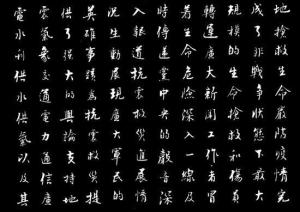 地搶救生命嚴防疫情完
成了非戰爭狀態下最大
規模的生命搶救和傷員
轉運廣大新聞工作者冒
著生命危險深入一線及
時傳遞黨中央的聲音深
入報道抗震救災進展情
況生動展現廣大軍民的
英雄事蹟為抗震救災提
供了強大的輿論支持地
震氣象交通電力通信廣
電水利供水供氣以及其